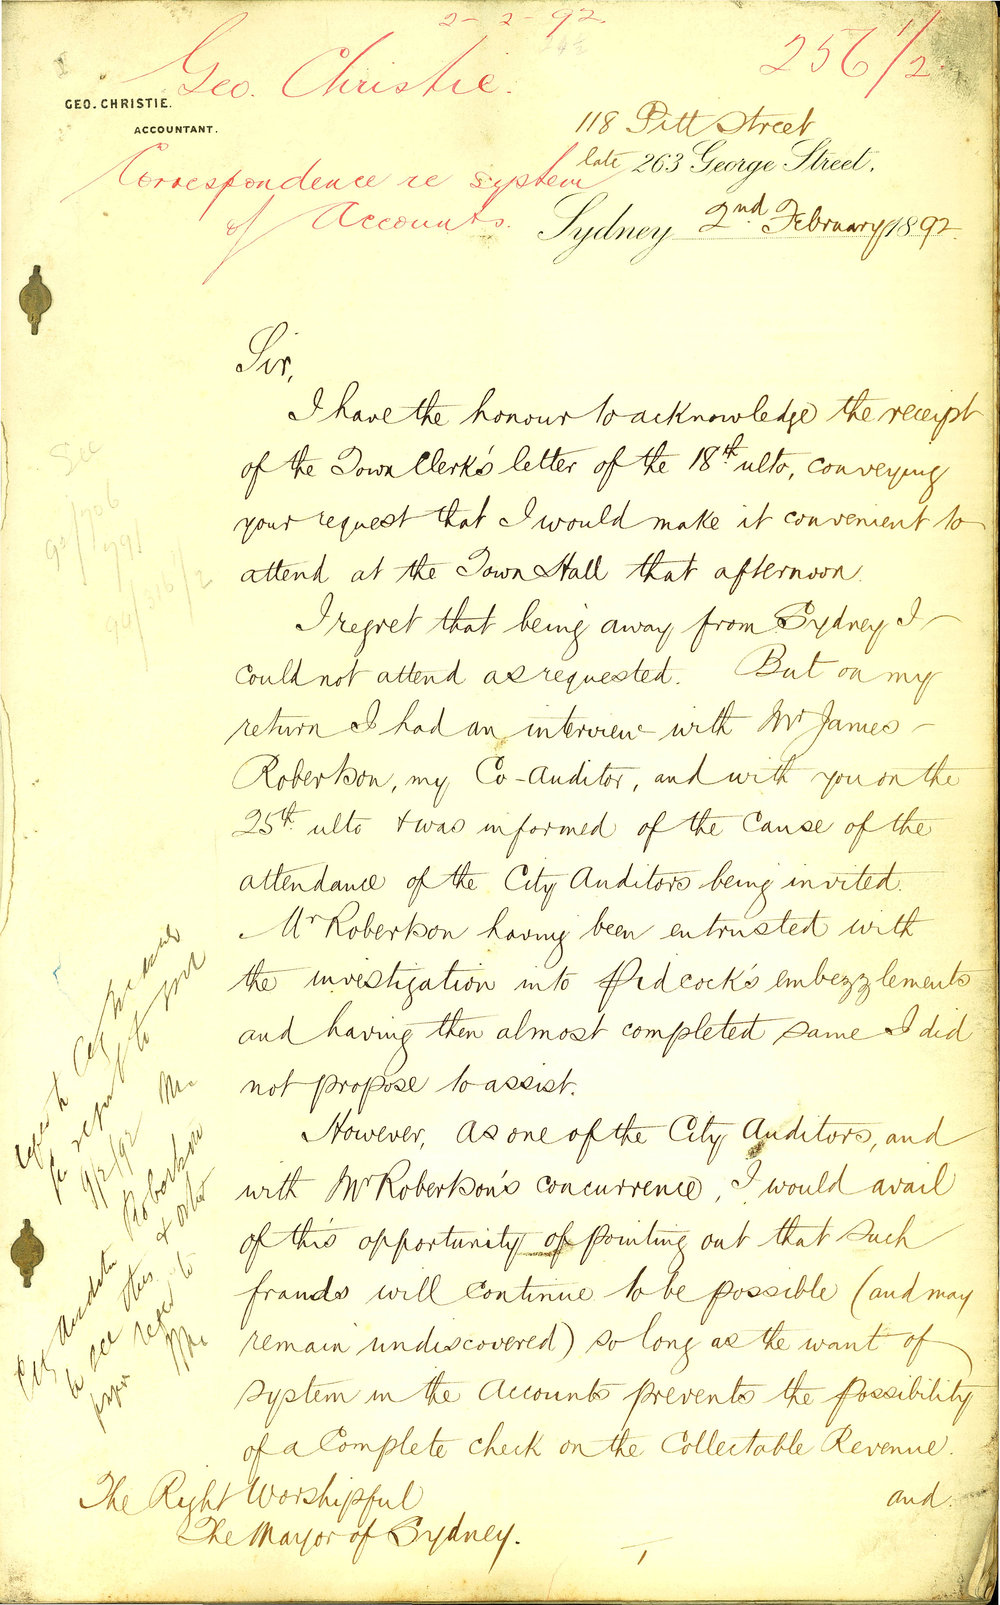 2-2-92
256 1/2
Geo. Christie.
GEO. CHRISTIE.
ACCOUNTANT.
118 Pitt Street
late 263 George Street,
Correspondence re system
of Accounts.
Sydney 2nd February 1892.
Sir,
I have the honour to acknowledge the receipt
of the Town Clerk's letter of the 18th ulto, conveying
your request that I would make it convenient to
attend at the Town Hall that afternoon.
I regret that being away from Sydney I
could not attend as requested. But on my
return I had an interview with Mr James
Robertson, my Co-Auditor, and with you on the
25th ulto & was informed of the cause of the
attendance of the City Auditors being invited.
Mr Robertson having been entrusted with
the investigation into Pidcock's embezzlements
and having then almost completed same I did
not propose to assist.
However, as one of the City Auditors, and
with Mr Robertson's concurrence, I would avail
of this opportunity of pointing out that such
frauds will continue to be possible (and may
remain undiscovered) so long as the want of
system in the Accounts prevents the possibility
of a Complete check on the Collectable Revenue.
and
The Right Worshipful
The Mayor of Sydney.
1
See
9/2/92
Robertson
City Auditor
to see this